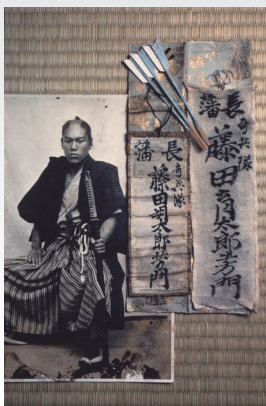 長
藩
奇兵隊
藤田
太郎
芳門
長
藩
奇兵隊
藤田
太郎
芳門